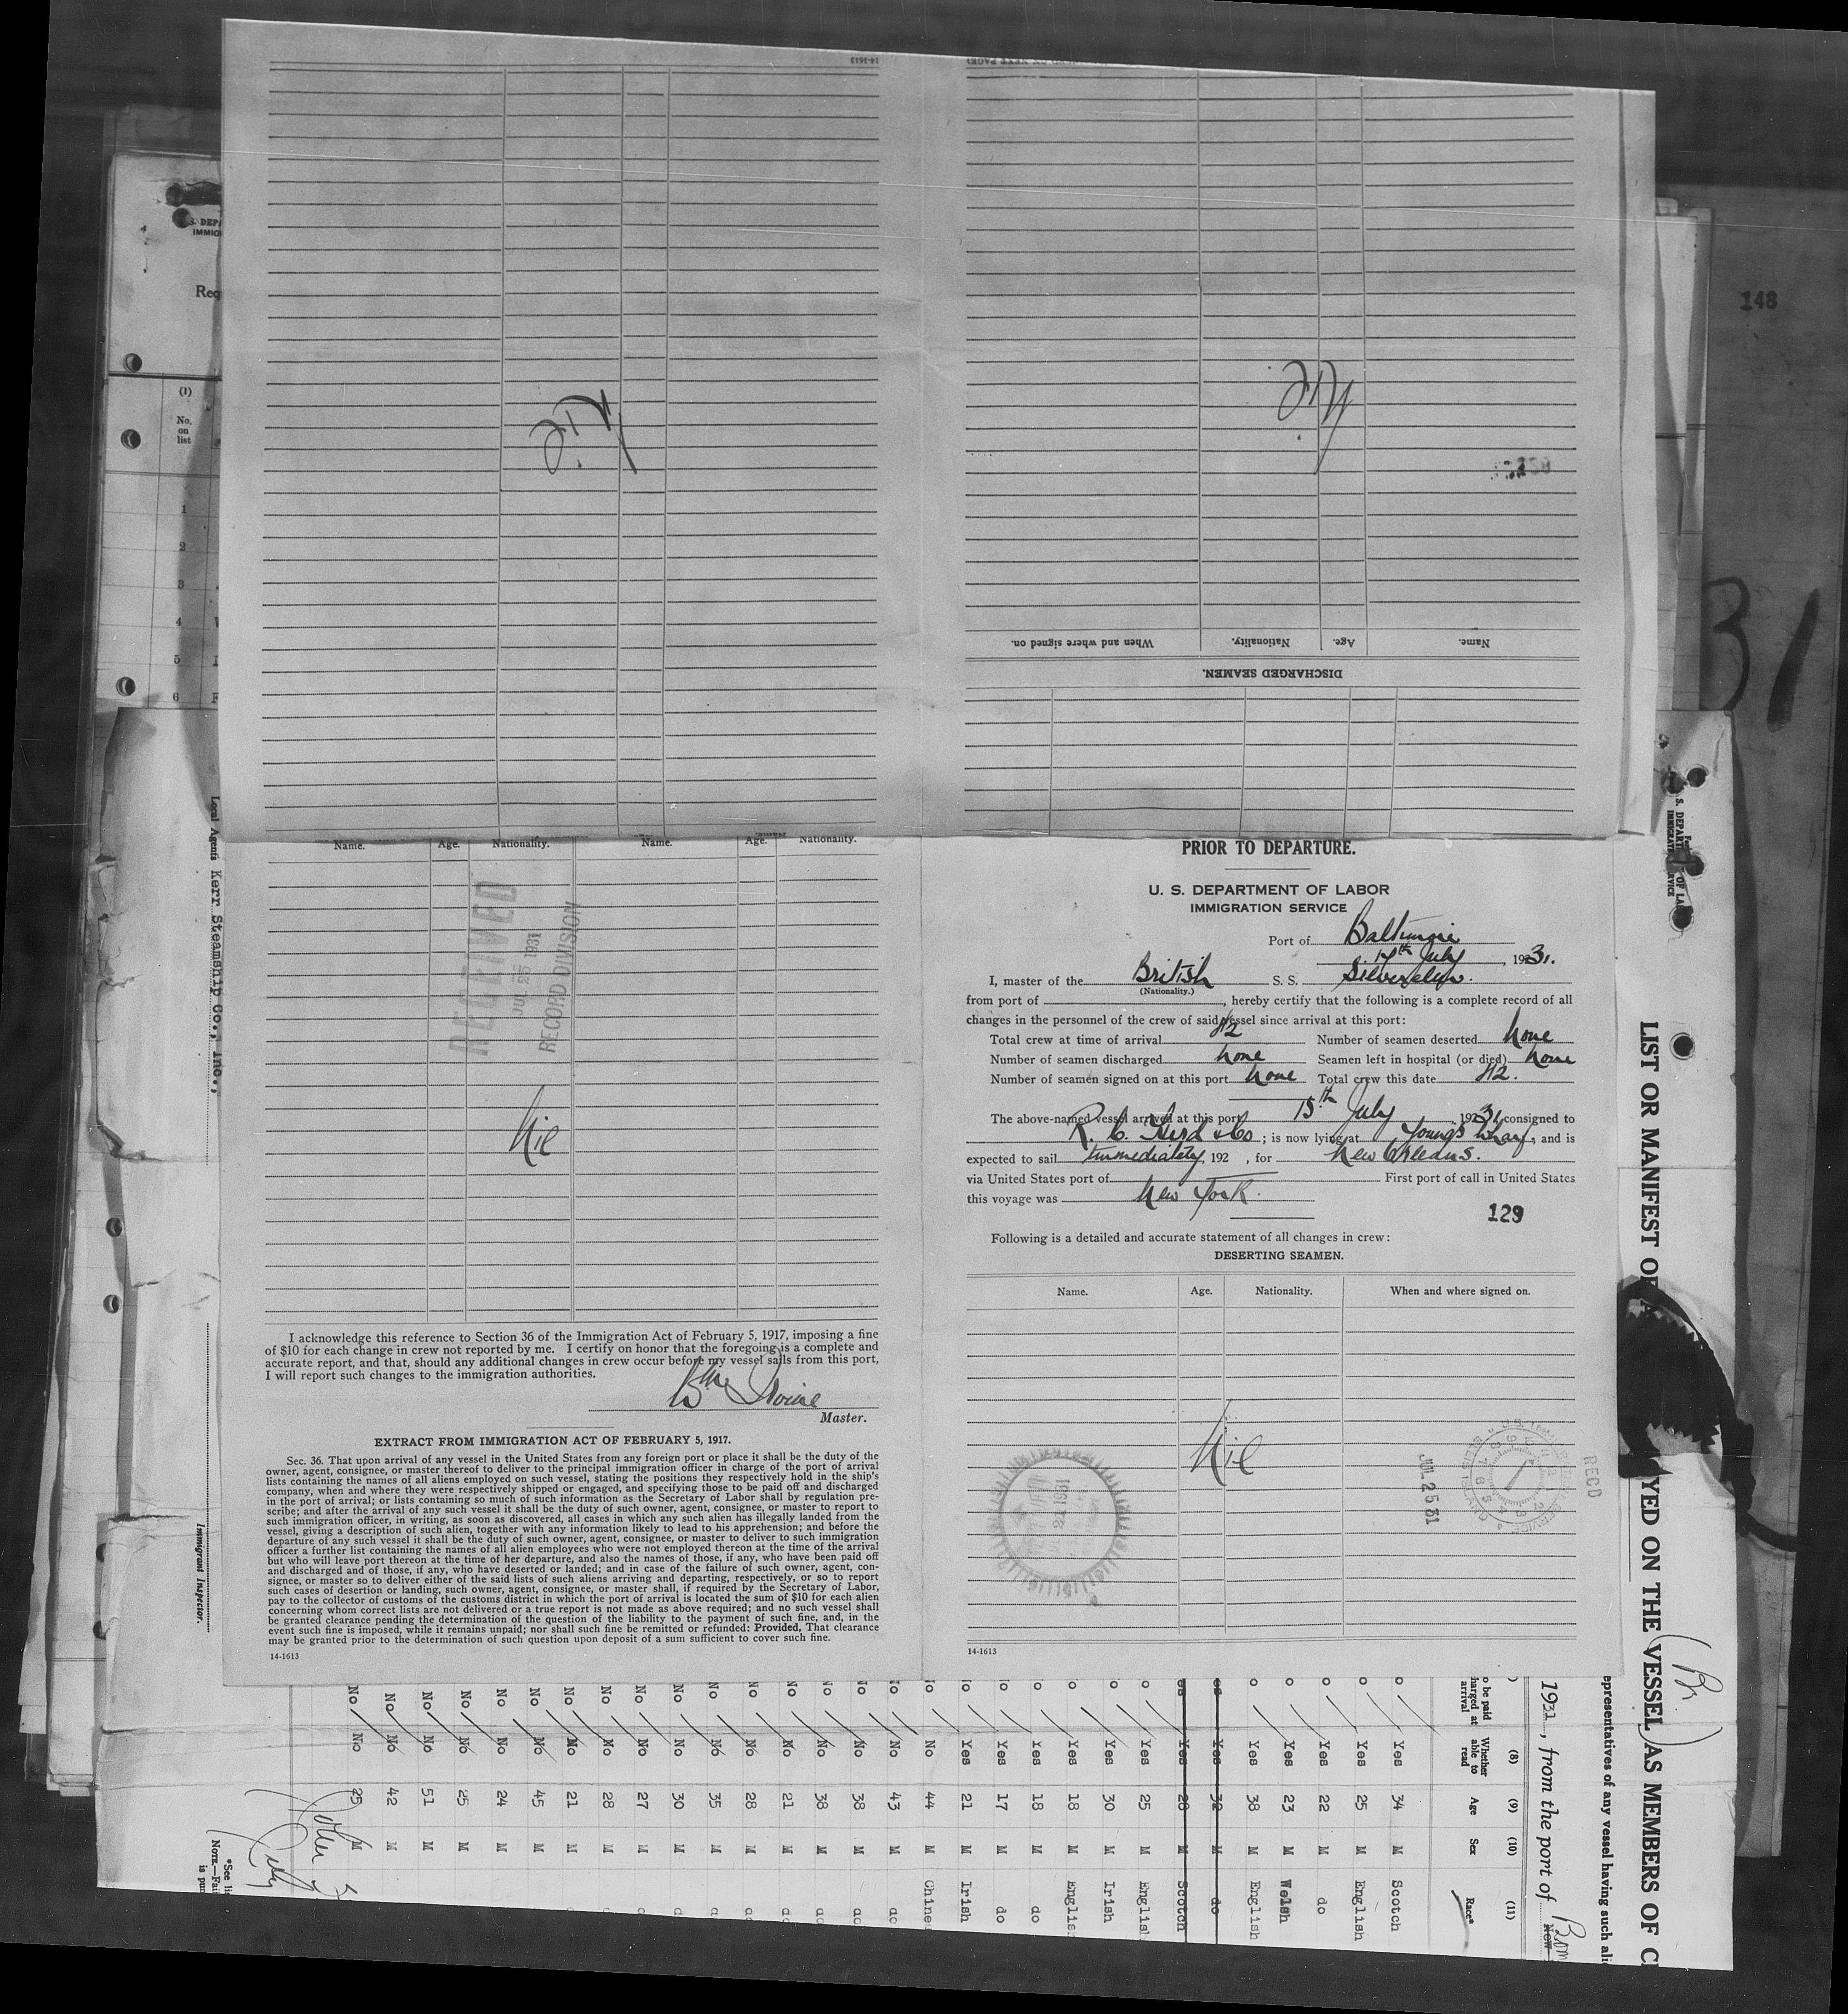 14-1613
Nil
Nil
148
31
Name.
Age.
Nationality.
When and where signed on.
DISCHARGED SEAMEN.
S. DEP
IMMIG
Req
(1)
No.
on
list
1
2
3
4
5
6
Local Agents Kerr Steamship Co., Inc.,
Immigrant Inspector.
Name. Age. Nationality. Name. Age. Nationality.
RECEIVED
JUL 25 1931
RECORD DIVISION
Nil
I acknowledge this reference to Section 36 of the Immigration Act of February 5, 1917, imposing a fine
of $10 for each change in crew not reported by me. I certify on honor that the foregoing is a complete and
accurate report, and that, should any additional changes in crew occur before my vessel sails from this port,
I will report such changes to the immigration authorities.
Master.
EXTRACT FROM IMMIGRATION ACT OF FEBRUARY 5, 1917.
Sec. 36. That upon arrival of any vessel in the United States from any foreign port or place it shall be the duty of the
owner, agent, consignee, or master thereof to deliver to the principal immigration officer in charge of the port of arrival
lists containing the names of all aliens employed on such vessel, stating the positions they respectively hold in the ship's
company, when and where they were respectively shipped or engaged, and specifying those to be paid off and discharged
in the port of arrival; or lists containing so much of such information as the Secretary of Labor shall by regulation pre-
scribe; and after the arrival of any such vessel it shall be the duty of such owner, agent, consignee, or master to report to
such immigration officer, in writing, as soon as discovered, all cases in which any such alien has illegally landed from the
vessel, giving a description of such alien, together with any information likely to lead to his apprehension; and before the
departure of any such vessel it shall be the duty of such owner, agent, consignee, or master to deliver to such immigration
officer a further list containing the names of all alien employees who were not employed thereon at the time of the arrival
but who will leave port thereon at the time of her departure, and also the names of those, if any, who have been paid off
and discharged and of those, if any, who have deserted or landed; and in case of the failure of such owner, agent, con-
signee, or master so to deliver either of the said lists of such aliens arriving and departing, respectively, or so to report
such cases of desertion or landing, such owner, agent, consignee, or master shall, if required by the Secretary of Labor,
pay to the collector of customs of the customs district in which the port of arrival is located the sum of $10 for each alien
concerning whom correct lists are not delivered or a true report is not made as above required; and no such vessel shall
be granted clearance pending the determination of the question of the liability to the payment of such fine, and, in the
event such fine is imposed, while it remains unpaid; nor shall such fine be remitted or refunded: Provided, That clearance
may be granted prior to the determination of such question upon deposit of a sum sufficient to cover such fine.
14-1613
PRIOR TO DEPARTURE.
U. S. DEPARTMENT OF LABOR
IMMIGRATION SERVICE
Port of Baltimore
17th July, 1931.
I, master of the British S. S.
(Nationality.)
from port of , hereby certify that the following is a complete record of all
changes in the personnel of the crew of said vessel since arrival at this port:
Total crew at time of arrival 42 Number of seamen deserted none
Number of seamen discharged none Seamen left in hospital (or died) none
Number of seamen signed on at this port none Total crew this date 42.
The above-named vessel arrived at this port 15th July 1931, consigned to
R. C. Herd & Co ; is now lying at Youngs Wharf, and is
expected to sail Immediately, 192 , for New Orleans.
via United States port of First port of call in United States
this voyage was New York.
129
Following is a detailed and accurate statement of all changes in crew:
DESERTING SEAMEN.
Name. Age. Nationality. When and where signed on.
Nil
JUL 25 31
RECD
14-1613
LIST OR MANIFEST OF
YED ON THE VESSEL AS MEMBERS OF C
(Br.)
epresentatives of any vessel having such ali
1931, from the port of
o be paid
harged at
arrival
(8)
Whether
able to
read
(9)
Age
(10)
Sex
(11)
Race*
o Yes 34 M Scotch
o Yes 25 M English
o Yes 22 M do
o Yes 23 M Welsh
o Yes 38 M English
es Yes 32 M do
es Yes 28 M Scotch
o Yes 25 M English
o Yes 30 M Irish
o Yes 18 M Englis
o Yes 18 M do
o Yes 17 M do
lo Yes 21 M Irish
lo No 44 M Chines
No No 43 M do
No No 38 M do
No No 38 M do
No No 21 M do
No No 28 M
No No 35 M
No No 30 M
No No 27 M
No No 28 M
No No 21 M
No No 45 M
No No 24 M
No No 25 M
No No 51 M
No No 42 M
No No 25 M
*See li
NOTE.—Fai
is pu